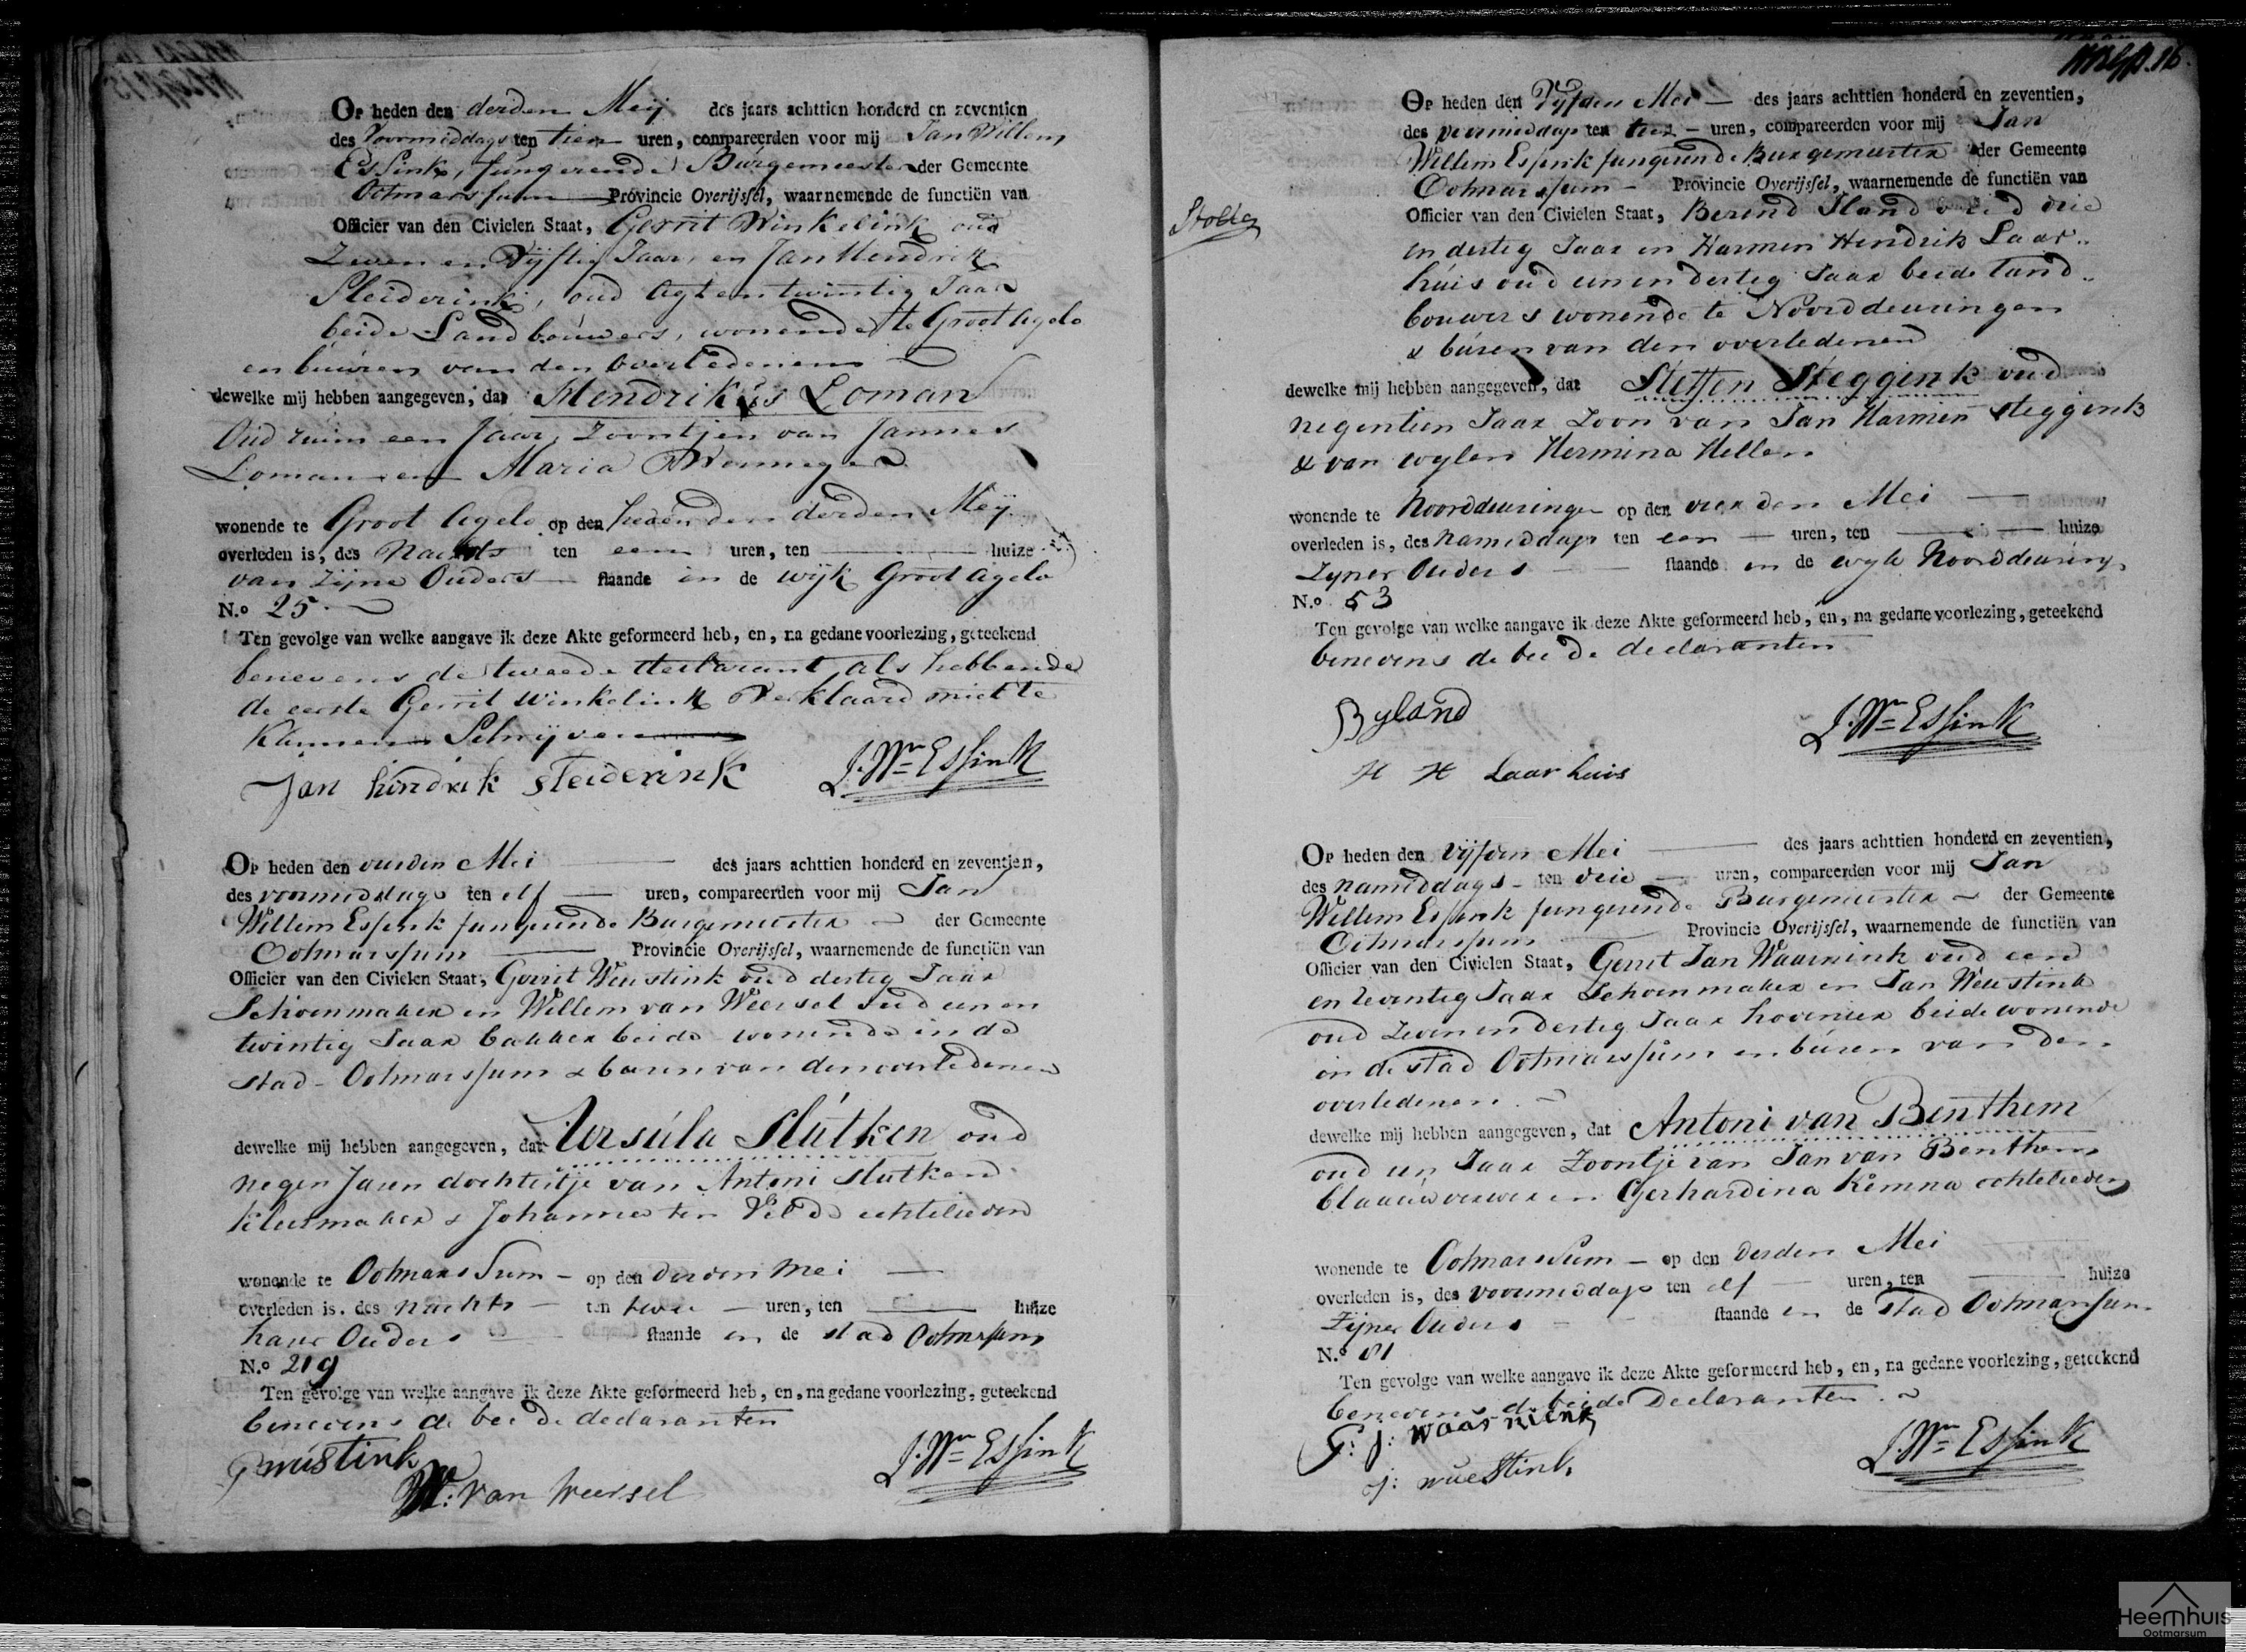 Op heden den derden Meij des jaars achttien honderd en zeventien
des Voormiddags ten tien uren, compareerden voor mij Jan Willem
Essink, fungerende Burgemeester der Gemeente
Ootmarssum Provincie Overijssel, waarnemende de functiën van
Officier van den Civielen Staat, Gerrit Winkelink oud
Zeven en Vijftig Jaar, en Jan Hendrik
Sleiderink, oud Agt en twintig Jaar
beide Landbouwers, wonende te Groot Agelo
en buuren van den Overledenen
dewelke mij hebben aangegeven, dat Hendrikus Loman
Oud ruim een Jaar, Zoontjen van Jannes
Loman en Maria
wonende te Groot Agelo op den heden den derden Meij
overleden is, des Nachts ten een uren, ten huize
van Zijne Ouders staande in de wijk Groot Agelo
N.o 25
Ten gevolge van welke aangave ik deze Akte geformeerd heb, en, na gedane voorlezing, geteekend
benevens de tweede declarant, als hebbende
de eerste Gerrit Winkelink Verklaard niet te
Kunnen Schrijven
Jan hindrik sleiderink J. Wm Essink
Op heden den derden Mei des jaars achttien honderd en zeventien,
des voormiddags ten elf uren, compareerden voor mij Jan
Willem Essink fungerende Burgemeester der Gemeente
Ootmarssum Provincie Overijssel, waarnemende de functiën van
Officier van den Civielen Staat, Gerrit Weustink oud dertig Jaar
Schoenmaker en Willem van Weersel oud een en
twintig Jaar bakker beide wonende in de
stad Ootmarssum & buren van den overledenen
dewelke mij hebben aangegeven, dat Ursúla Slútken oud
negen Jaren dochtertje van Antoni Slutken
Kleermaker & Johanna ten Velde echtelieden
wonende te Ootmarssum op den derden Mei
overleden is, des nachts ten twee uren, ten huize
harer Ouders staande in de stad Ootmarssum
N.o 219
Ten gevolge van welke aangave ik deze Akte geformeerd heb, en, na gedane voorlezing, geteekend
benevens de beide declaranten
G wústink J. Wm Essink
W: van weersel
Stolte
16.
Op heden den Vijfden Mei des jaars achttien honderd en zeventien,
des voormiddags ten tien uren, compareerden voor mij Jan
Willem Essink fungerende Burgemeester der Gemeente
Ootmarssum Provincie Overijssel, waarnemende de functiën van
Officier van den Civielen Staat, Berend IJland oud drie
en dertig Jaar en Harmen Hendrik Laar
huis oud een en dertig Jaar beide land
bouwers wonende te Noorddeuringen
& buren van den overledenen
dewelke mij hebben aangegeven, dat Steffen Steggink oud
negentien Jaar Zoon van Jan Harmen Steggink
& van wylen Hermina Hellen
wonende te Noorddeuringen op den vierden Mei
overleden is, des Namiddags ten een uren, ten huize
Zyner Ouders staande in de wyk Noorddeuring.
N.o 53
Ten gevolge van welke aangave ik deze Akte geformeerd heb, en, na gedane voorlezing, geteekend
benevens de beide declaranten
B yland J. Wm Essink
H H Laarhuis
Op heden den vijfden Mei des jaars achttien honderd en zeventien,
des namiddags ten drie uren, compareerden voor mij Jan
Willem Essink fungerende Burgemeester der Gemeente
Ootmarssum Provincie Overijssel, waarnemende de functiën van
Officier van den Civielen Staat, Gerrit Jan Waarnink oud een
en Zeventig Jaar Schoenmaker en Jan Weustink
oud Zeven en dertig Jaar hovenier beide wonende
in de stad Ootmarssum en buren van den
overledenen.
dewelke mij hebben aangegeven, dat Antoni van Benthem
oud een Jaar Zoontje van Jan van Benthem
blaauwverwer en Gerhardina Kemna echtelieden
wonende te Ootmarssum op den derden Mei
overleden is, des voormiddags ten elf uren, ten huize
Zijner Ouders staande in de stad Ootmarssum
N.o 81
Ten gevolge van welke aangave ik deze Akte geformeerd heb, en, na gedane voorlezing, geteekend
benevens de beide Declaranten.
G: J: waarnink J. Wm Essink
J: wuestink
Heemhuis
Ootmarsum